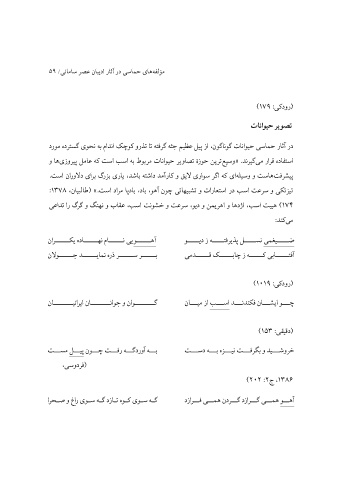 مؤلفه‌های حماسی در آثار ادیبان عصر سامانی/ ۵۹
(رودکی: ۱۷۹)
تصویر حیوانات
در آثار حماسی حیوانات گوناگون، از پیل عظیم جثه گرفته تا تذرو کوچک اندام به نحوی گسترده مورد
استفاده قرار می‌گیرند. «وسیع‌ترین حوزة تصاویر حیوانات مربوط به اسب است که عامل پیروزی‌ها و
پیشرفت‌هاست و وسیله‌ای که اگر سواری لایق و کارآمد داشته باشد، یاری بزرگ برای دلاوران است.
تیزتکی و سرعت اسب در استعارات و تشبیهاتی چون آهو، باد، بادپا مراد است.» (طالبیان، ۱۳۷۸:
۱۷۴) هیبت اسب، اژدها و اهریمن و دیو، سرعت و خشونت اسب، عقاب و نهنگ و گرگ را تداعی
می‌کند:
ضیغمی نسل پذیرفته ز دیو آهویی نام نهاده یکران
آفتابی که ز چابک قدمی بر سر ذره نماید جولان
(رودکی: ۱۰۱۹)
چو ایشان فکندند اسب از میان گوان و جوانان ایرانیان
(دقیقی: ۱۵۳)
خروشید و بگرفت نیزه به دست به آوردگه رفت چون پیل مست
(فردوسی،
۱۳۸۶، ج۲: ۲۰۲)
آهو همی گرازد گردن همی فرازد گه سوی کوه تازد گه سوی راغ و صحرا